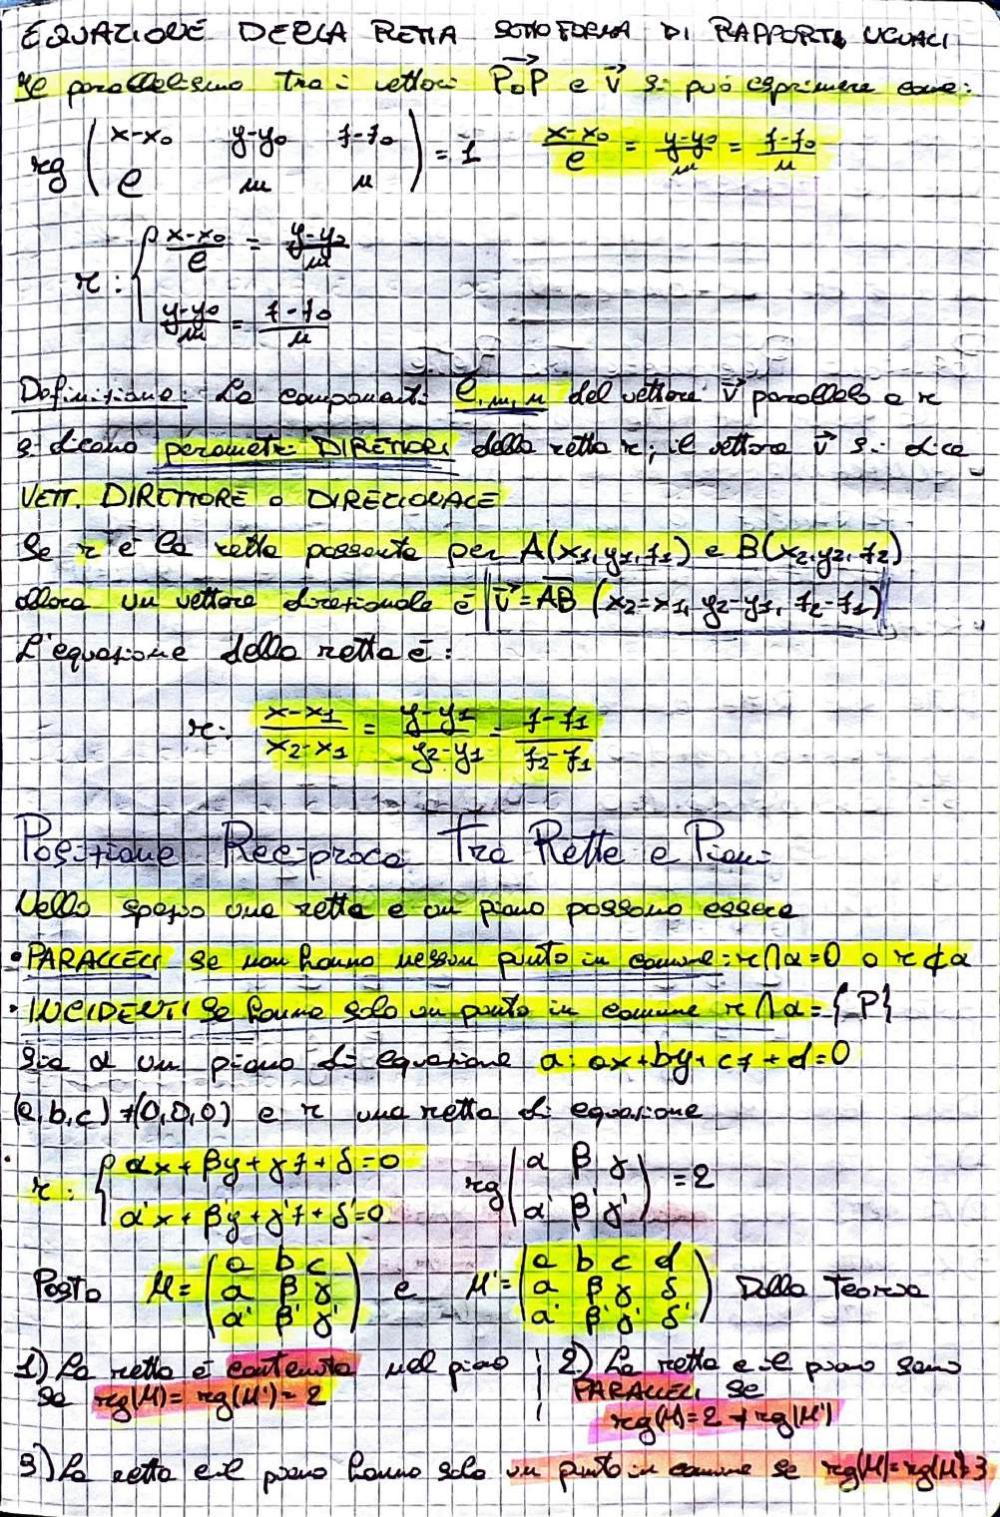 EQUAZIONE DELLA RETTA SOTTO FORMA DI RAPPORTI UGUALI
Il parallelismo tra i vettori P₀P e v si può esprimere come:
rg ( x-x₀ y-y₀ z-z₀ ) = 1    x-x₀/l = y-y₀/m = z-z₀/n
l m n
r: { x-x₀/l = y-y₀/m
y-y₀/m = z-z₀/n
Definizione: Le componenti l, m, n del vettore v parallelo a r
si dicono parametri DIRETTORI della retta r; il vettore v si dice
VETT. DIRETTORE O DIREZIONALE
Se r è la retta passante per A(x₁,y₁,z₁) e B(x₂,y₂,z₂)
allora un vettore direzionale è v=AB (x₂=x₁, y₂-y₁, z₂-z₁)
L'equazione della retta è:
r: x-x₁/x₂-x₁ = y-y₁/y₂-y₁ = z-z₁/z₂-z₁
Posizione Reciproca Tra Rette e Piani
Nello spazio una retta e un piano possono essere
• PARALLELI se non hanno nessun punto in comune: r∩α=0 o r⊄α
• INCIDENTI se hanno solo un punto in comune r∩α={P}
Sia α un piano di equazione α: ax+by+cz+d=0
(a,b,c)≠(0,0,0) e r una retta di equazione
r: { αx+βy+γz+δ=0    rg ( α β γ ) = 2
α'x+β'y+γ'z+δ'=0    α' β' γ'
Posto M= ( a b c ) e M'= ( a b c d ) Dalla Teoria
α β γ    α β γ δ
α' β' γ'    α' β' γ' δ'
1) La retta è contenuta nel piano
se rg(M)=rg(M')=2
2) La retta e il piano sono
PARALLELI se
rg(M)=2≠rg(M')
3) La retta e il piano hanno solo un punto in comune se rg(M)=rg(M')=3